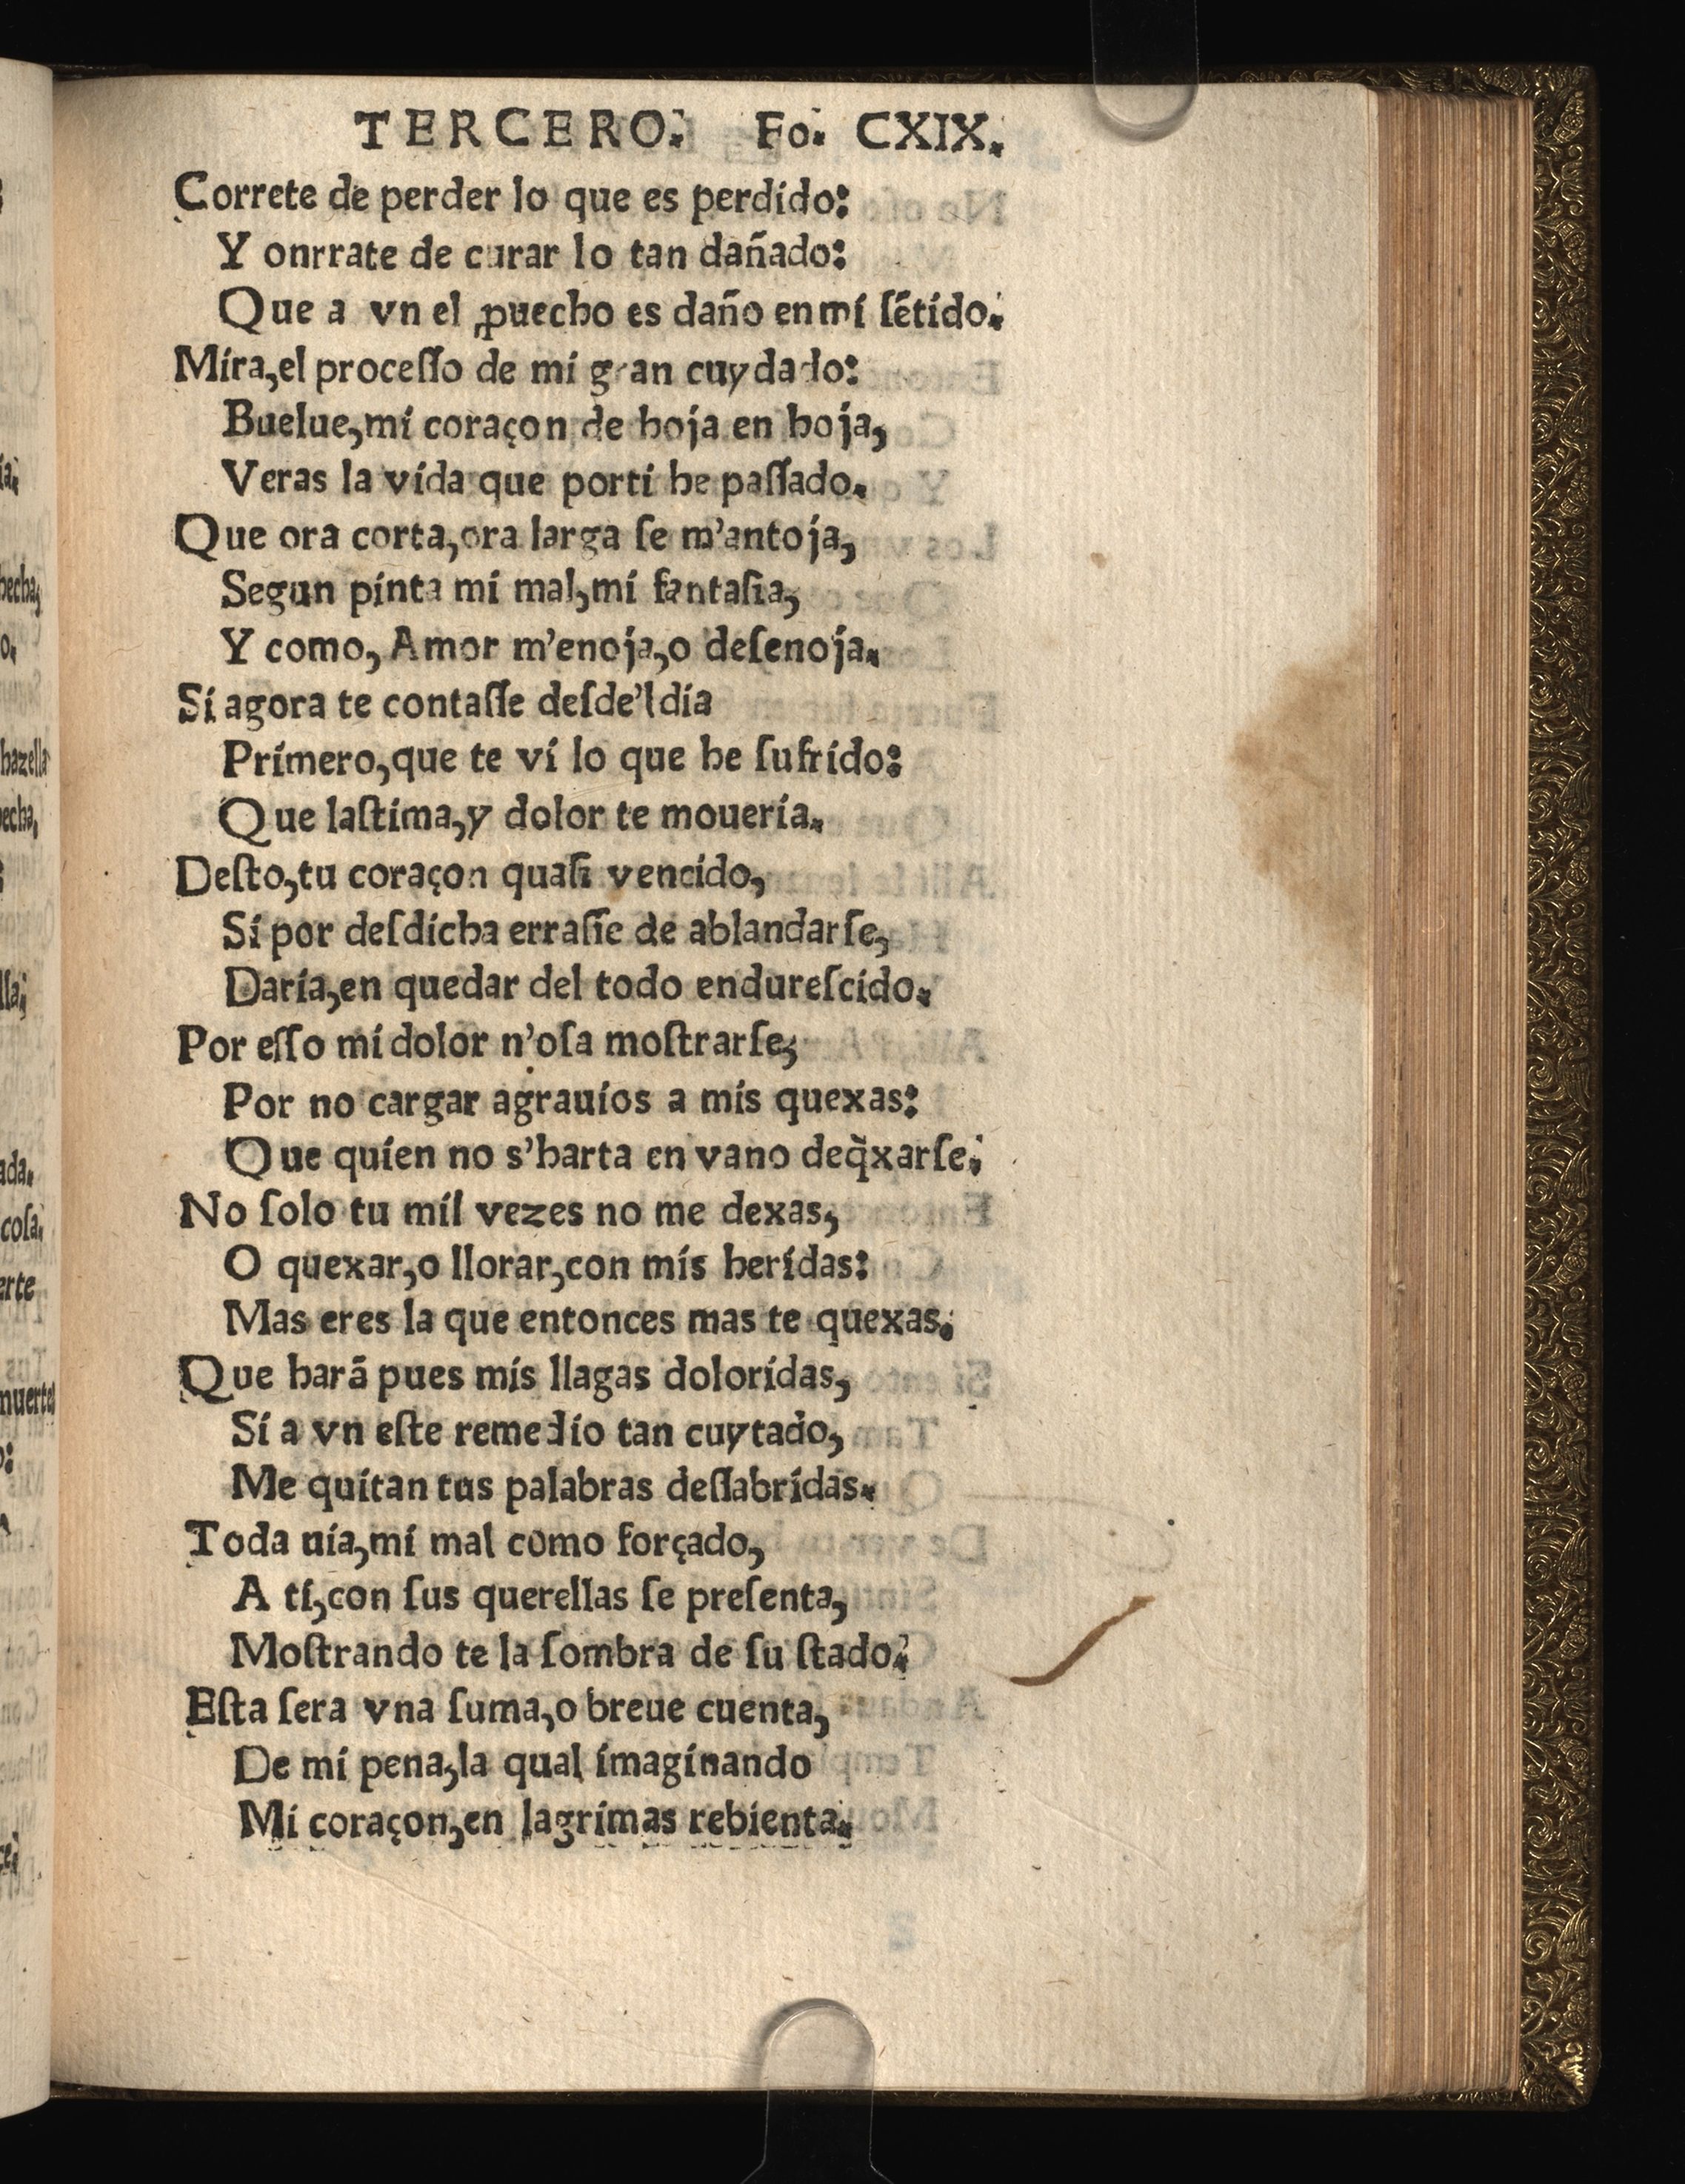 TERCERO. Fo. CXIX.
Correte de perder lo que es perdido:
Y onrrate de curar lo tan dañado:
Que a vn el ꝓuecho es daño en mi ſētido.
Mira,el proceſſo de mi gran cuydado:
Buelue,mi coraçon de hoja en hoja,
Veras la vida que porti he paſſado.
Que ora corta,ora larga ſe m'antoja,
Segun pinta mi mal,mi fantaſia,
Y como, Amor m'enoja,o deſenoja.
Si agora te contaſſe deſde'l dia
Primero,que te vi lo que he ſufrido:
Que laſtima,y dolor te moueria.
Deſto,tu coraçon quaſi vencido,
Si por deſdicha erraſſe de ablandarſe,
Daria,en quedar del todo endureſcido.
Por eſſo mi dolor n'oſa moſtrarſe,
Por no cargar agrauios a mis quexas:
Que quien no s'harta en vano deq̃xarſe.
No ſolo tu mil vezes no me dexas,
O quexar,o llorar,con mis heridas:
Mas eres la que entonces mas te quexas.
Que harã pues mis llagas doloridas,
Si a vn eſte remedio tan cuytado,
Me quitan tus palabras deſſabridas.
Toda uia,mi mal como forçado,
A ti,con ſus querellas ſe preſenta,
Moſtrando te la ſombra de ſu ſtado.
Eſta ſera vna ſuma,o breue cuenta,
De mi pena,la qual imaginando
Mi coraçon,en lagrimas rebienta.